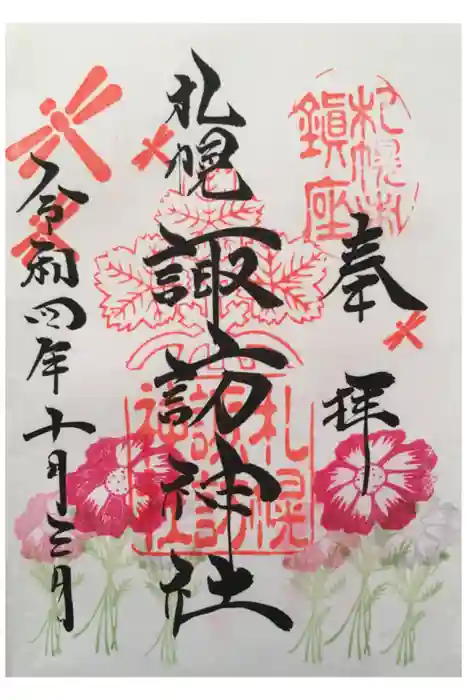 札幌
鎭座
奉拝
札幌諏訪神社
札幌
諏訪
神社
令和四年十月三日